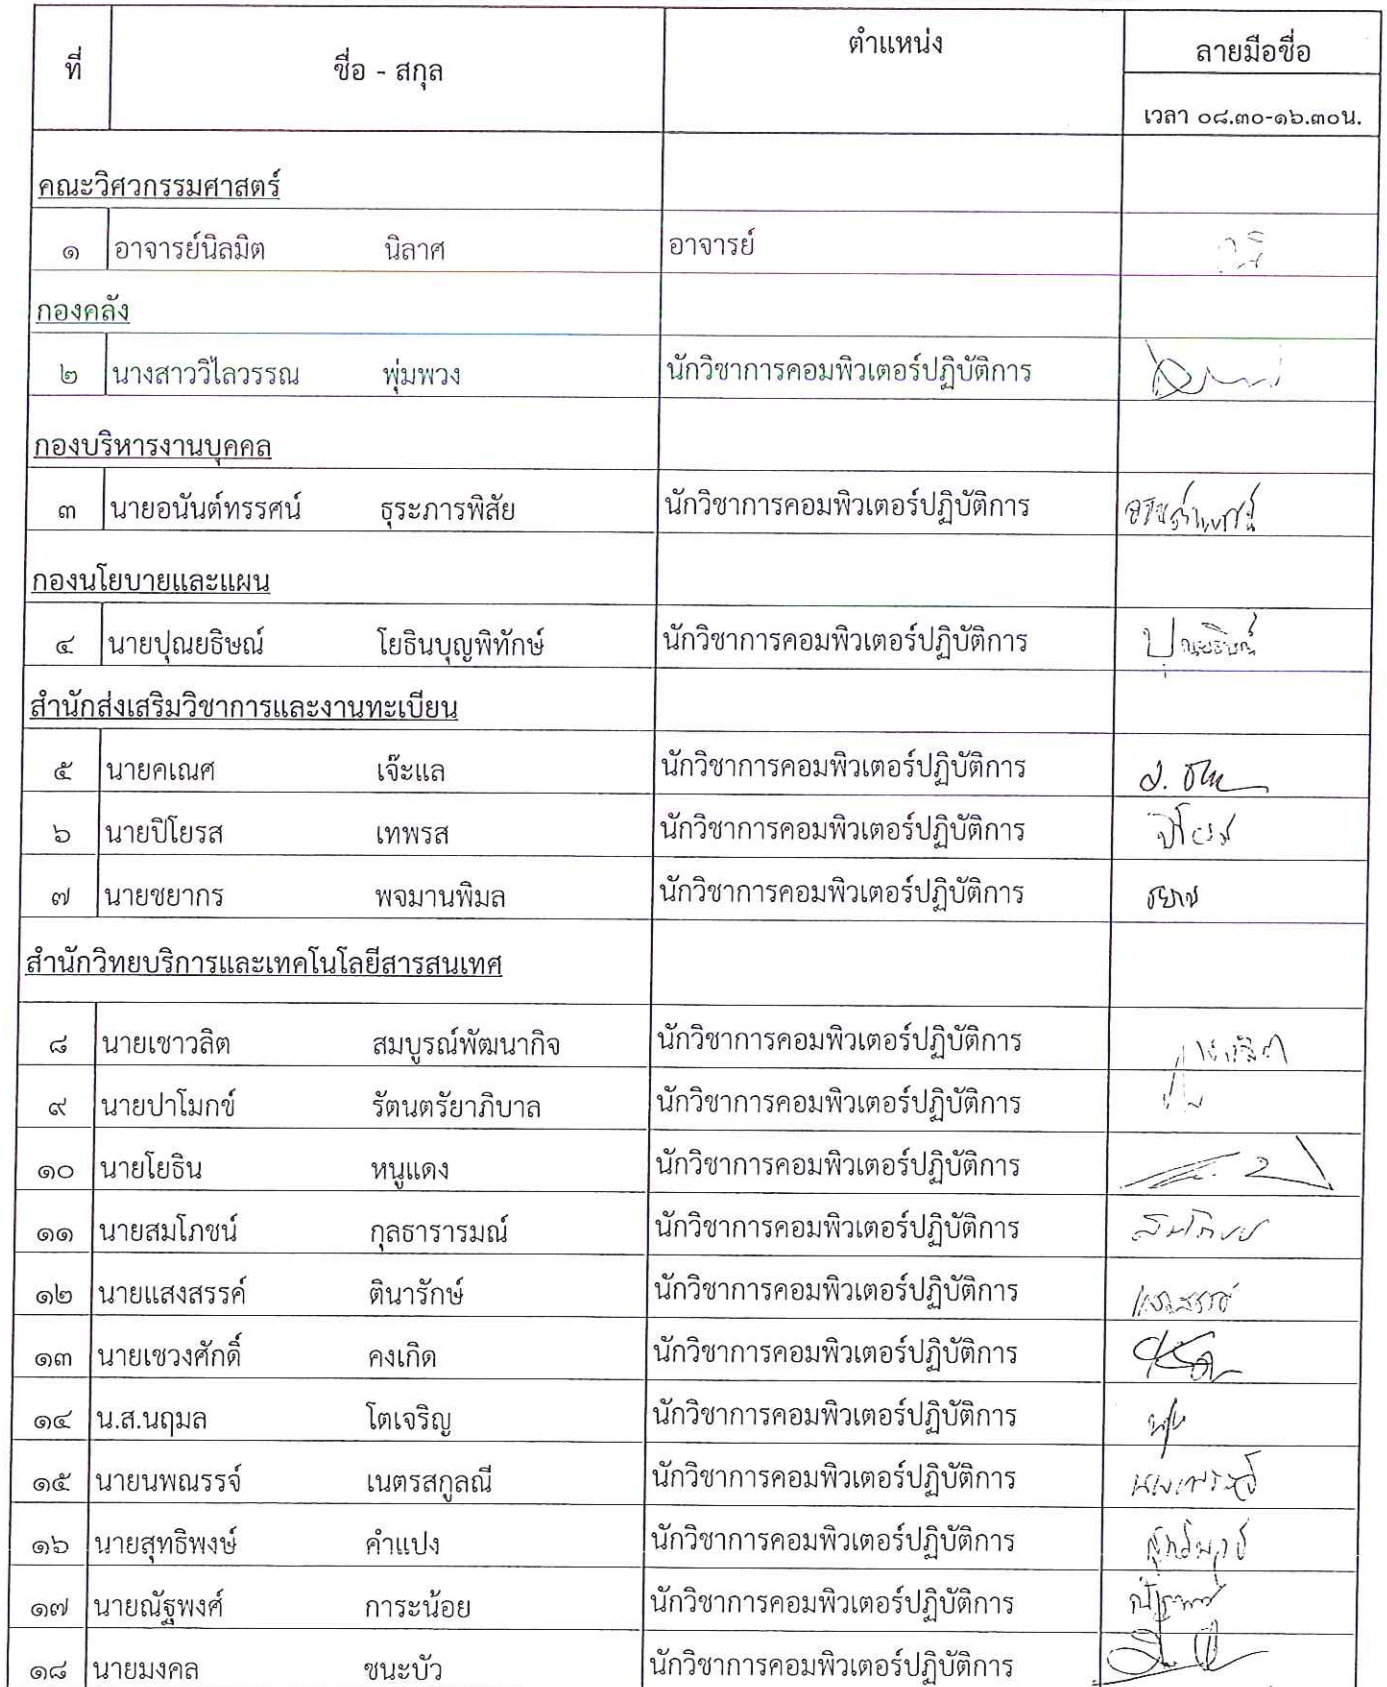 ที่ ชื่อ - สกุล ตำแหน่ง ลายมือชื่อ
เวลา ๐๘.๓๐-๑๖.๓๐น.
คณะวิศวกรรมศาสตร์
๑ อาจารย์นิลมิต นิลาศ อาจารย์
กองคลัง
๒ นางสาววิไลวรรณ พุ่มพวง นักวิชาการคอมพิวเตอร์ปฏิบัติการ
กองบริหารงานบุคคล
๓ นายอนันต์ทรรศน์ ธุระภารพิสัย นักวิชาการคอมพิวเตอร์ปฏิบัติการ
กองนโยบายและแผน
๔ นายปุณยธิษณ์ โยธินบุญพิทักษ์ นักวิชาการคอมพิวเตอร์ปฏิบัติการ ปุณยธิษณ์
สำนักส่งเสริมวิชาการและงานทะเบียน
๕ นายคเณศ เจ๊ะแล นักวิชาการคอมพิวเตอร์ปฏิบัติการ
๖ นายปิโยรส เทพรส นักวิชาการคอมพิวเตอร์ปฏิบัติการ ปิโยรส
๗ นายชยากร พจมานพิมล นักวิชาการคอมพิวเตอร์ปฏิบัติการ
สำนักวิทยบริการและเทคโนโลยีสารสนเทศ
๘ นายเชาวลิต สมบูรณ์พัฒนากิจ นักวิชาการคอมพิวเตอร์ปฏิบัติการ
๙ นายปาโมกข์ รัตนตรัยาภิบาล นักวิชาการคอมพิวเตอร์ปฏิบัติการ
๑๐ นายโยธิน หนูแดง นักวิชาการคอมพิวเตอร์ปฏิบัติการ
๑๑ นายสมโภชน์ กุลธารารมณ์ นักวิชาการคอมพิวเตอร์ปฏิบัติการ
๑๒ นายแสงสรรค์ ตินารักษ์ นักวิชาการคอมพิวเตอร์ปฏิบัติการ แสงสรรค์
๑๓ นายเชวงศักดิ์ คงเกิด นักวิชาการคอมพิวเตอร์ปฏิบัติการ
๑๔ น.ส.นฤมล โตเจริญ นักวิชาการคอมพิวเตอร์ปฏิบัติการ
๑๕ นายนพณรรจ์ เนตรสกูลณี นักวิชาการคอมพิวเตอร์ปฏิบัติการ
๑๖ นายสุทธิพงษ์ คำแปง นักวิชาการคอมพิวเตอร์ปฏิบัติการ
๑๗ นายณัฐพงศ์ การะน้อย นักวิชาการคอมพิวเตอร์ปฏิบัติการ
๑๘ นายมงคล ชนะบัว นักวิชาการคอมพิวเตอร์ปฏิบัติการ